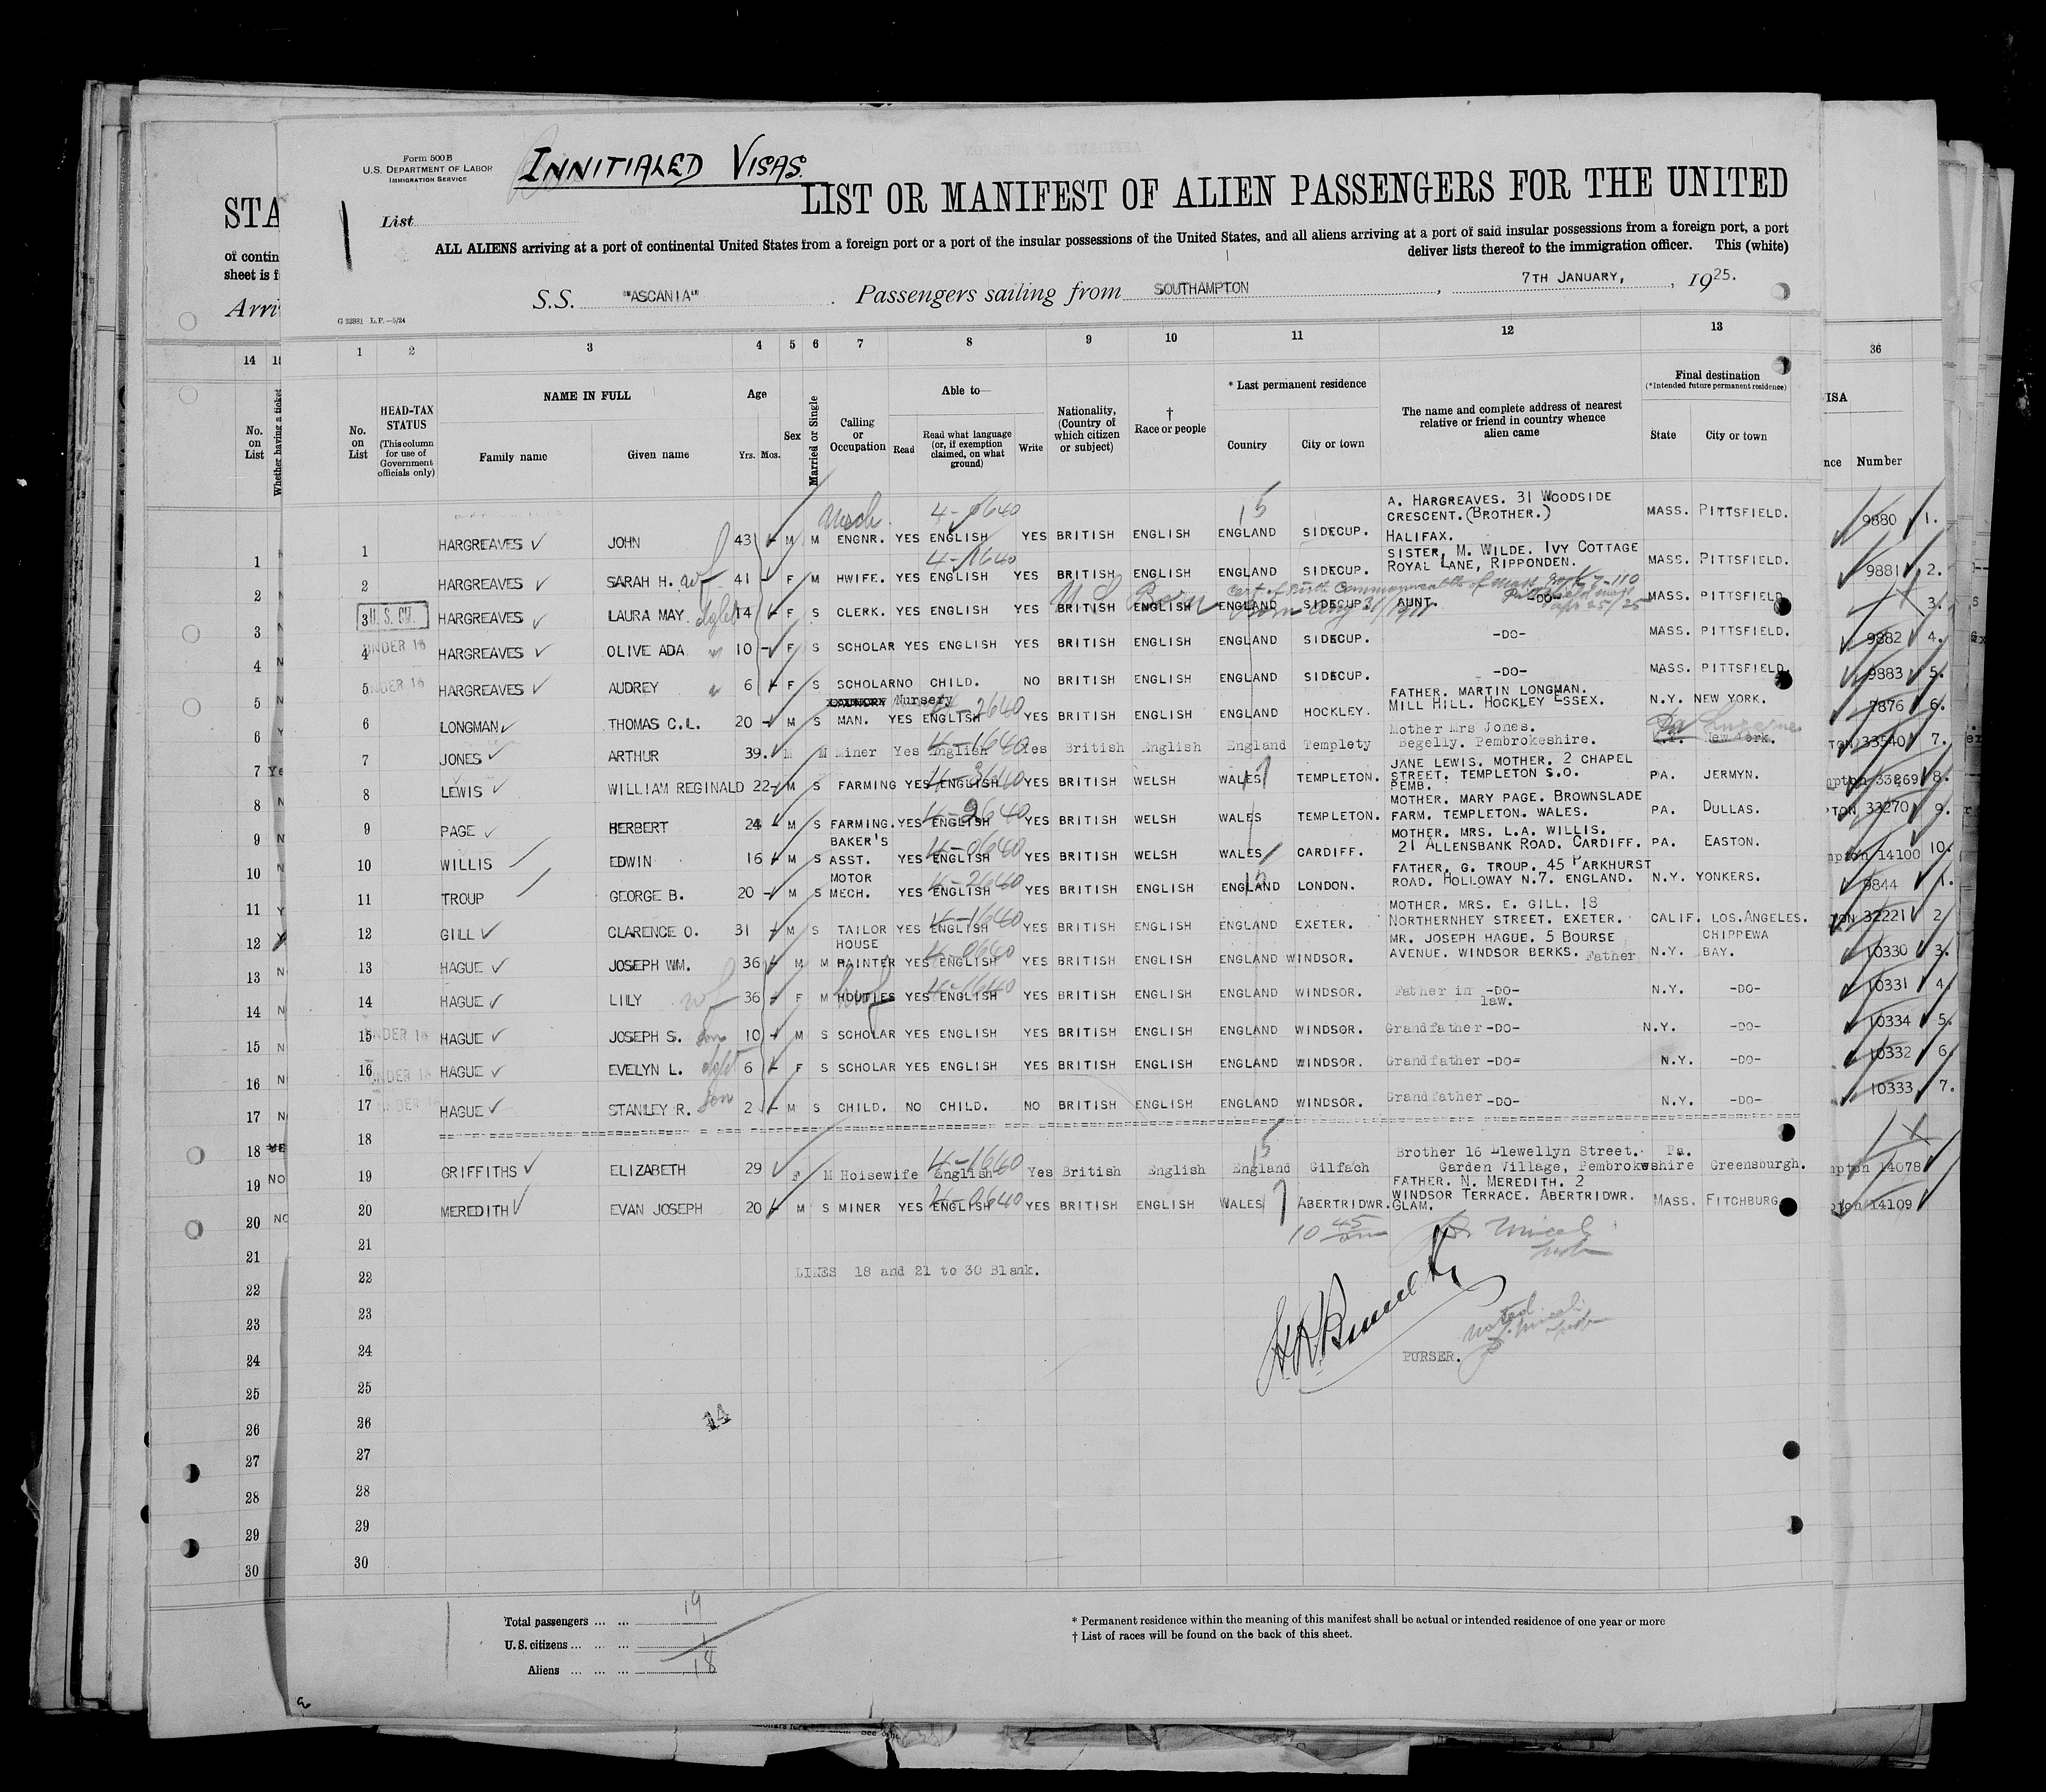 Form 500B
U.S. DEPARTMENT OF LABOR
IMMIGRATION SERVICE
INNITIALED VISAS.
List
LIST OR MANIFEST OF ALIEN PASSENGERS FOR THE UNITED
STA
ALL ALIENS arriving at a port of continental United States from a foreign port or a port of the insular possessions of the United States, and all aliens arriving at a port of said insular possessions from a foreign port, a port
deliver lists thereof to the immigration officer. This (white)
of contin
sheet is f
Arri
S.S. "ASCANIA" Passengers sailing from SOUTHAMPTON, 7TH JANUARY, 1925.
G 23881 L.P.—5/24
14 1 2 3 4 5 6 7 8 9 10 11 12 13 36
No. on List
Whether having a ticket
No. on List
HEAD-TAX STATUS
(This column for use of Government officials only)
NAME IN FULL
Family name
Given name
Age
Yrs. Mos.
Sex
Married or Single
Calling or Occupation
Able to—
Read
Read what language (or, if exemption claimed, on what ground)
Write
Nationality, (Country of which citizen or subject)
† Race or people
* Last permanent residence
Country
City or town
The name and complete address of nearest relative or friend in country whence alien came
Final destination
(*Intended future permanent residence)
State
City or town
ISA
nce Number
1 HARGREAVES JOHN 43 M M ENGNR. YES ENGLISH YES BRITISH ENGLISH ENGLAND SIDECUP. A. HARGREAVES. 31 WOODSIDE CRESCENT.(BROTHER.) HALIFAX. MASS. PITTSFIELD. 9880 1.
2 HARGREAVES SARAH H. wf 41 F M HWIFE. YES ENGLISH YES BRITISH ENGLISH ENGLAND SIDECUP. SISTER, M. WILDE. IVY COTTAGE ROYAL LANE, RIPPONDEN. MASS. PITTSFIELD. 9881 2.
3 U.S. CIT. HARGREAVES LAURA MAY. dght 14 F S CLERK. YES ENGLISH YES BRITISH ENGLISH ENGLAND SIDECUP. AUNT. -DO- MASS. PITTSFIELD 3.
US Born
4 UNDER 16 HARGREAVES OLIVE ADA 10 F S SCHOLAR YES ENGLISH YES BRITISH ENGLISH ENGLAND SIDECUP. -DO- MASS. PITTSFIELD. 9882 4.
5 UNDER 16 HARGREAVES AUDREY 6 F S SCHOLAR NO CHILD. NO BRITISH ENGLISH ENGLAND SIDECUP. -DO- MASS. PITTSFIELD. 9883 5.
6 LONGMAN THOMAS C.L. 20 M S Nursery MAN. YES ENGLISH YES BRITISH ENGLISH ENGLAND HOCKLEY. FATHER. MARTIN LONGMAN. MILL HILL. HOCKLEY ESSEX. N.Y. NEW YORK. 9876 6.
7 JONES ARTHUR 39. M M Miner Yes English Yes British English England Templety Mother Mrs Jones. Begelly. Pembrokeshire. N.Y. New York. Pa Luzerne TON 33540 7.
8 LEWIS WILLIAM REGINALD 22 M S FARMING YES ENGLISH YES BRITISH WELSH WALES TEMPLETON. JANE LEWIS. MOTHER. 2 CHAPEL STREET. TEMPLETON S.O. PEMB. PA. JERMYN. mpton 33269 8.
9 PAGE HERBERT 24 M S FARMING. YES ENGLISH YES BRITISH WELSH WALES TEMPLETON. MOTHER. MARY PAGE. BROWNSLADE FARM. TEMPLETON. WALES. PA. DULLAS. PTON 33270 9.
10 WILLIS EDWIN 16 M S BAKER'S ASST. YES ENGLISH YES BRITISH WELSH WALES CARDIFF. MOTHER. MRS. L.A. WILLIS. 21 ALLENSBANK ROAD. CARDIFF. PA. EASTON. mpton 14100 10.
11 TROUP GEORGE B. 20 M S MOTOR MECH. YES ENGLISH YES BRITISH ENGLISH ENGLAND LONDON. FATHER, G. TROUP. 45 PARKHURST ROAD. HOLLOWAY N.7. ENGLAND. N.Y. YONKERS. 9844 1.
12 GILL CLARENCE O. 31 M S TAILOR YES ENGLISH YES BRITISH ENGLISH ENGLAND EXETER. MOTHER. MRS. E. GILL. 18 NORTHERNHEY STREET. EXETER. CALIF. LOS.ANGELES. TON 32221 2
13 HAGUE JOSEPH WM. 36 M M HOUSE PAINTER YES ENGLISH YES BRITISH ENGLISH ENGLAND WINDSOR. MR. JOSEPH HAGUE. 5 BOURSE AVENUE. WINDSOR BERKS. Father N.Y. CHIPPEWA BAY. 10330 3.
14 HAGUE LILY wf 36 F M HDUTIES YES ENGLISH YES BRITISH ENGLISH ENGLAND WINDSOR. Father in law. -DO- N.Y. -DO- 10331 4.
15 UNDER 16 HAGUE JOSEPH S. son 10 M S SCHOLAR YES ENGLISH YES BRITISH ENGLISH ENGLAND WINDSOR. Grandfather -DO- N.Y. -DO- 10334 5.
16 UNDER 16 HAGUE EVELYN L. dght 6 F S SCHOLAR YES ENGLISH YES BRITISH ENGLISH ENGLAND WINDSOR. Grandfather -DO- N.Y. -DO- 10332 6.
17 UNDER 16 HAGUE STANLEY R. son 2 M S CHILD. NO CHILD. NO BRITISH ENGLISH ENGLAND WINDSOR. Grandfather -DO- N.Y. -DO- 10333 7.
18
19 GRIFFITHS ELIZABETH 29 F M Hoisewife English Yes British English England Gilfach Brother 16 Llewellyn Street. Garden Village, Pembrokeshire Pa. Greensburgh. mpton 14078
20 MEREDITH EVAN JOSEPH 20 M S MINER YES ENGLISH YES BRITISH ENGLISH WALES ABERTRIDWR. FATHER. N. MEREDITH. 2 WINDSOR TERRACE. ABERTRIDWR. GLAM. MASS. FITCHBURG pton 14109
21
22 LINES 18 and 21 to 30 Blank.
23
24 PURSER.
25
26
27
28
29
30
Total passengers ... ... 19
U.S. citizens ... ... ... 1
Aliens ... ... ... 18
* Permanent residence within the meaning of this manifest shall be actual or intended residence of one year or more
† List of races will be found on the back of this sheet.